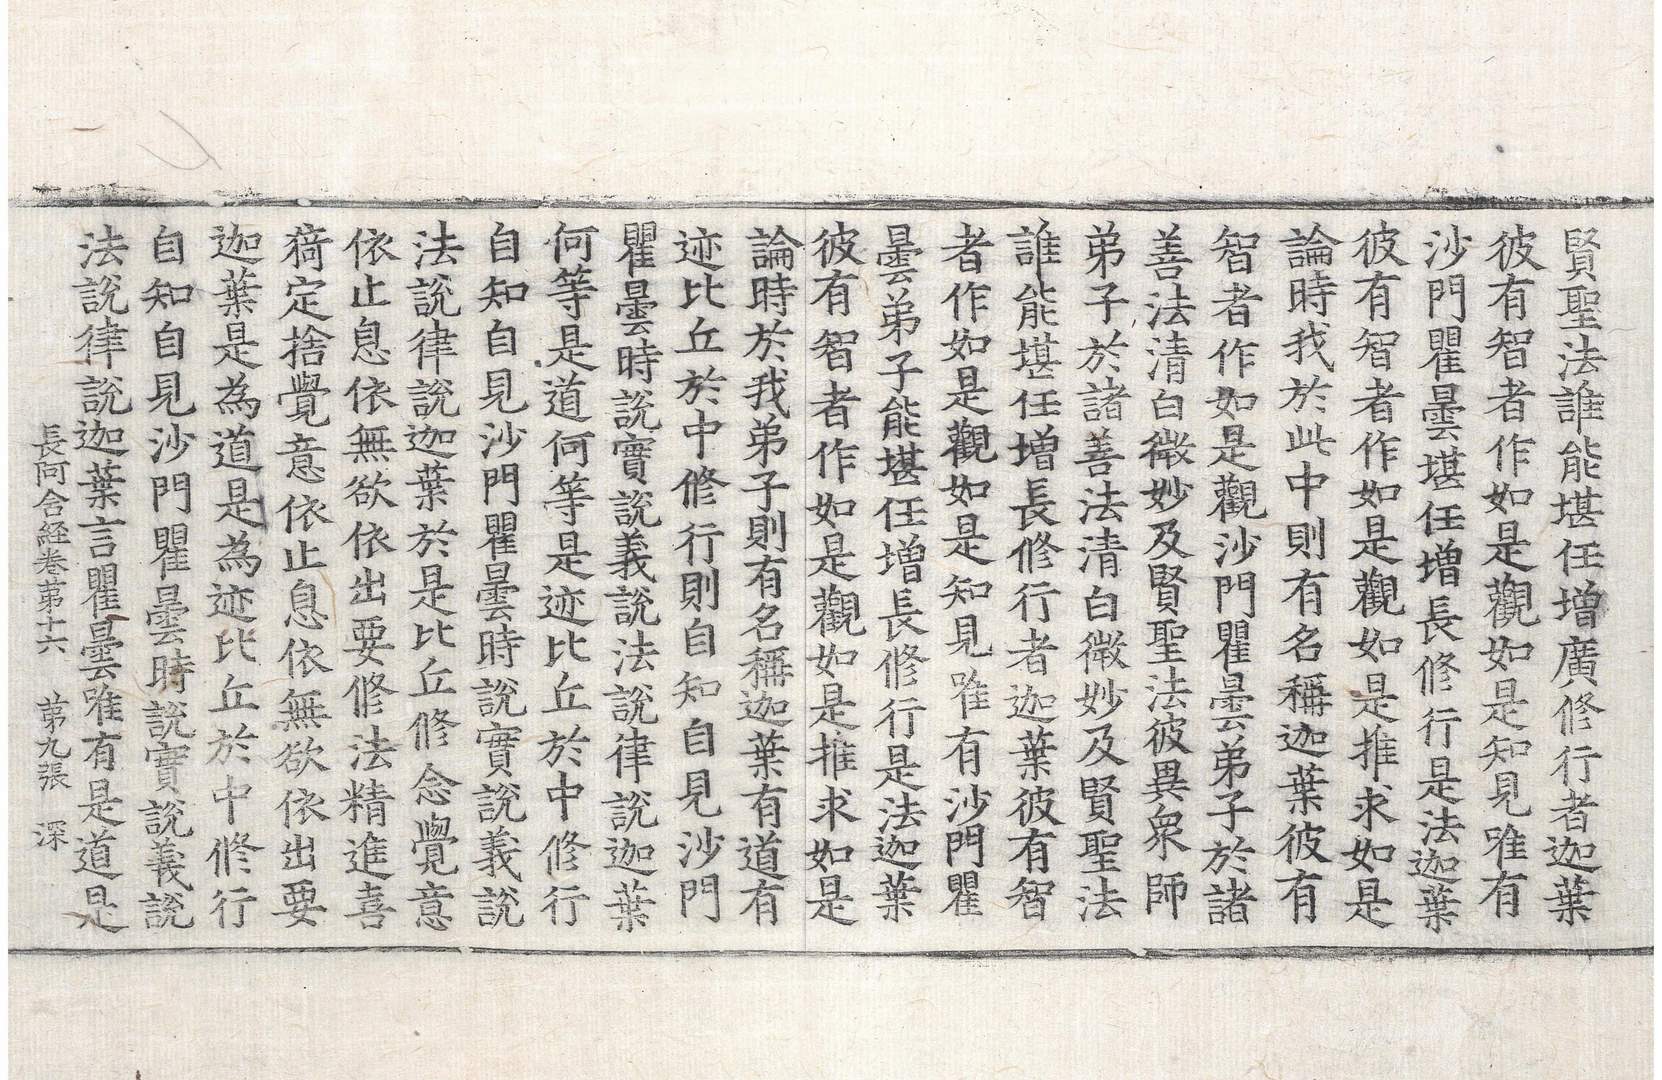 賢聖法誰能堪任增廣修行者迦葉
彼有智者作如是觀如是知見唯有
沙門瞿曇堪任增長修行是法迦葉
彼有智者作如是觀如是推求如是
論時我於此中則有名稱迦葉彼有
智者作如是觀沙門瞿曇弟子於諸
善法清白微妙及賢聖法彼異衆師
弟子於諸善法清白微妙及賢聖法
誰能堪任增長修行者迦葉彼有智
者作如是觀如是知見唯有沙門瞿
曇弟子能堪任增長修行是法迦葉
彼有智者作如是觀如是推求如是
論時於我弟子則有名稱迦葉有道有
迹比丘於中修行則自知自見沙門
瞿曇時說實說義說法說律說迦葉
何等是道何等是迹比丘於中修行
自知自見沙門瞿曇時說實說義說
法說律說迦葉於是比丘修念覺意
依止息依無欲依出要修法精進喜
猗定捨覺意依止息依無欲依出要
迦葉是為道是為迹比丘於中修行
自知自見沙門瞿曇時說實說義說
法說律說迦葉言瞿曇唯有是道是
長阿含経卷第十六 第九張 深